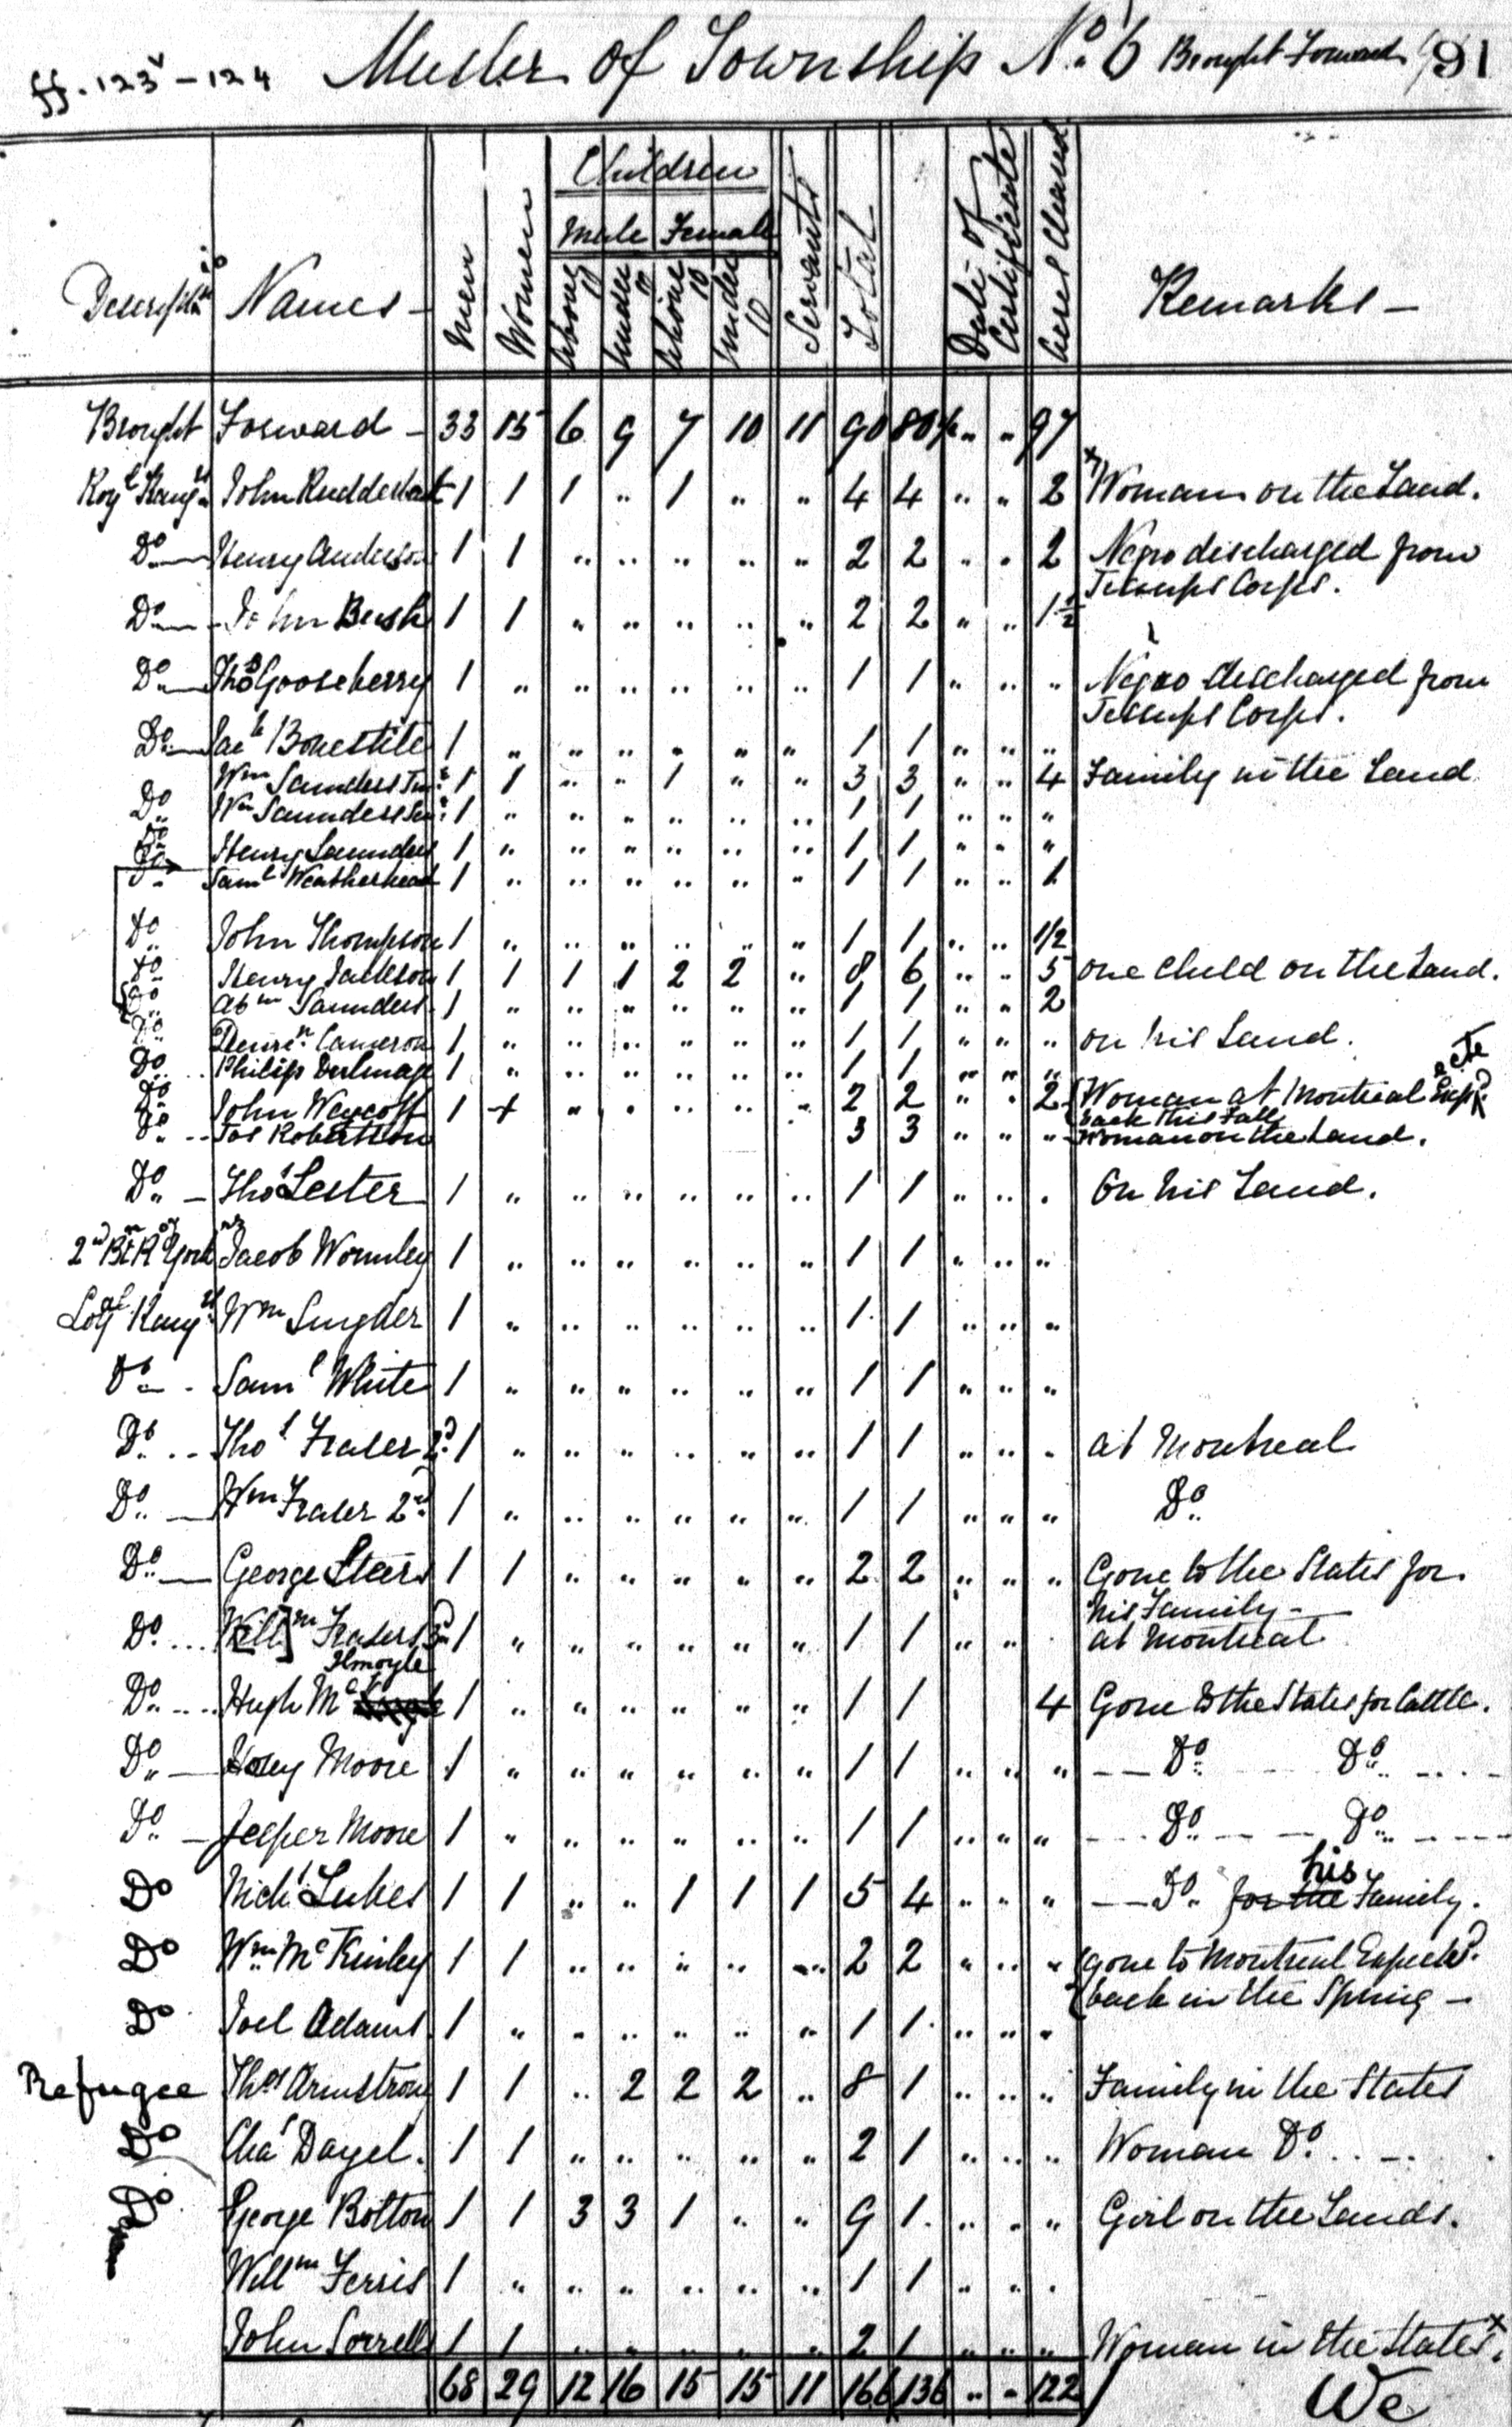 ff. 123v - 124 Muster of Township No. 6 Brought Forward 91
Children
Male Female
Descriptn Names - Men Women Above 10 Under 10 Above 10 Under 10 Servants Total Date of Certificate Acres Cleared Remarks -
Brought Forward - 33 15 6 9 7 10 11 90 80 .. .. 97
Royl Rangrs John Rudderbart 1 1 1 .. 1 .. .. 4 4 .. .. 2 Woman on the Land.
Do Henry Anderson 1 1 .. .. .. .. .. 2 2 .. .. 2 Negro discharged from
Jessups Corps.
Do John Bush 1 1 .. .. .. .. .. 2 2 .. .. 1½
Do Thos Gooseberry 1 .. .. .. .. .. .. 1 1 .. .. .. Negro discharged from
Jessups Corps.
Do Jacb Bonestile 1 .. .. .. .. .. .. 1 1 .. .. ..
Wm Saunders Junr 1 1 .. .. 1 .. .. 3 3 .. .. 4 Family in the Land
Do Wm Saunders Senr 1 .. .. .. .. .. .. 1 1 .. .. ..
Do Henry Saunders 1 .. .. .. .. .. .. 1 1 .. .. ..
Do Saml Weatherhead 1 .. .. .. .. .. .. 1 1 .. .. 1
Do John Thompson 1 .. .. .. .. .. .. 1 1 .. .. 1/2
Do Henry Jackson 1 1 1 1 2 2 .. 8 6 .. .. 5 one Child on the Land.
Do Abm Saunders 1 .. .. .. .. .. .. 1 1 .. .. 2
Do Cameron 1 .. .. .. .. .. .. 1 1 .. .. .. on his Land.
Do Philip Dulmage 1 .. .. .. .. .. .. 1 1 .. .. ..
Do John Weycott 1 + .. .. .. .. .. 2 2 .. .. 2 Woman at Montreal Expected
back this Fall
Do Jos Robertson 3 3 .. .. .. Woman on the Land.
Do Thos Lester 1 .. .. .. .. .. .. 1 1 .. .. .. On his Land.
2nd Btn KR York Jacob Wormley 1 .. .. .. .. .. .. 1 1 .. .. ..
Loyal Rangrs Wm Snyder 1 .. .. .. .. .. .. 1 1 .. .. ..
Do Saml White 1 .. .. .. .. .. .. 1 1 .. .. ..
Do Thos Fraser 2d 1 .. .. .. .. .. .. 1 1 .. .. .. at Montreal
Do Wm Fraser 2nd 1 .. .. .. .. .. .. 1 1 .. .. .. Do
Do George Steers 1 1 .. .. .. .. .. 2 2 .. .. .. Gone to the States for
his Family -
Do [Will]m Fraser 3d 1 .. .. .. .. .. .. 1 1 .. .. at Montreal
Ilmoyle
Do Hugh Mc 1 .. .. .. .. .. .. 1 1 4 Gone to the States for Cattle.
Do Moore 1 .. .. .. .. .. .. 1 1 .. .. .. Do Do
Do Jesper Moore 1 .. .. .. .. .. .. 1 1 .. .. .. Do Do
his
Do Nichs Lukes 1 1 .. .. 1 1 1 5 4 .. .. .. Do for the Family.
Do Wm McKinley 1 1 .. .. .. .. .. 2 2 .. .. .. gone to Montreal Expected
back in the Spring -
Do Joel Adams 1 .. .. .. .. .. .. 1 1 .. .. ..
Refugee Thos Armstrong 1 1 .. 2 2 2 .. 8 1 .. .. .. Family in the States
Do Chas Dayel. 1 1 .. .. .. .. .. 2 1 .. .. .. Woman Do
Do George Bolton 1 1 3 3 1 .. .. 9 1 .. .. .. Girl on the Lands.
Willm Ferris 1 .. .. .. .. .. .. 1 1 .. .. ..
John Sorrell 1 1 .. .. .. .. .. 2 1 .. .. .. Woman in the States.
68 29 12 16 15 15 11 166 136 .. .. 122
We